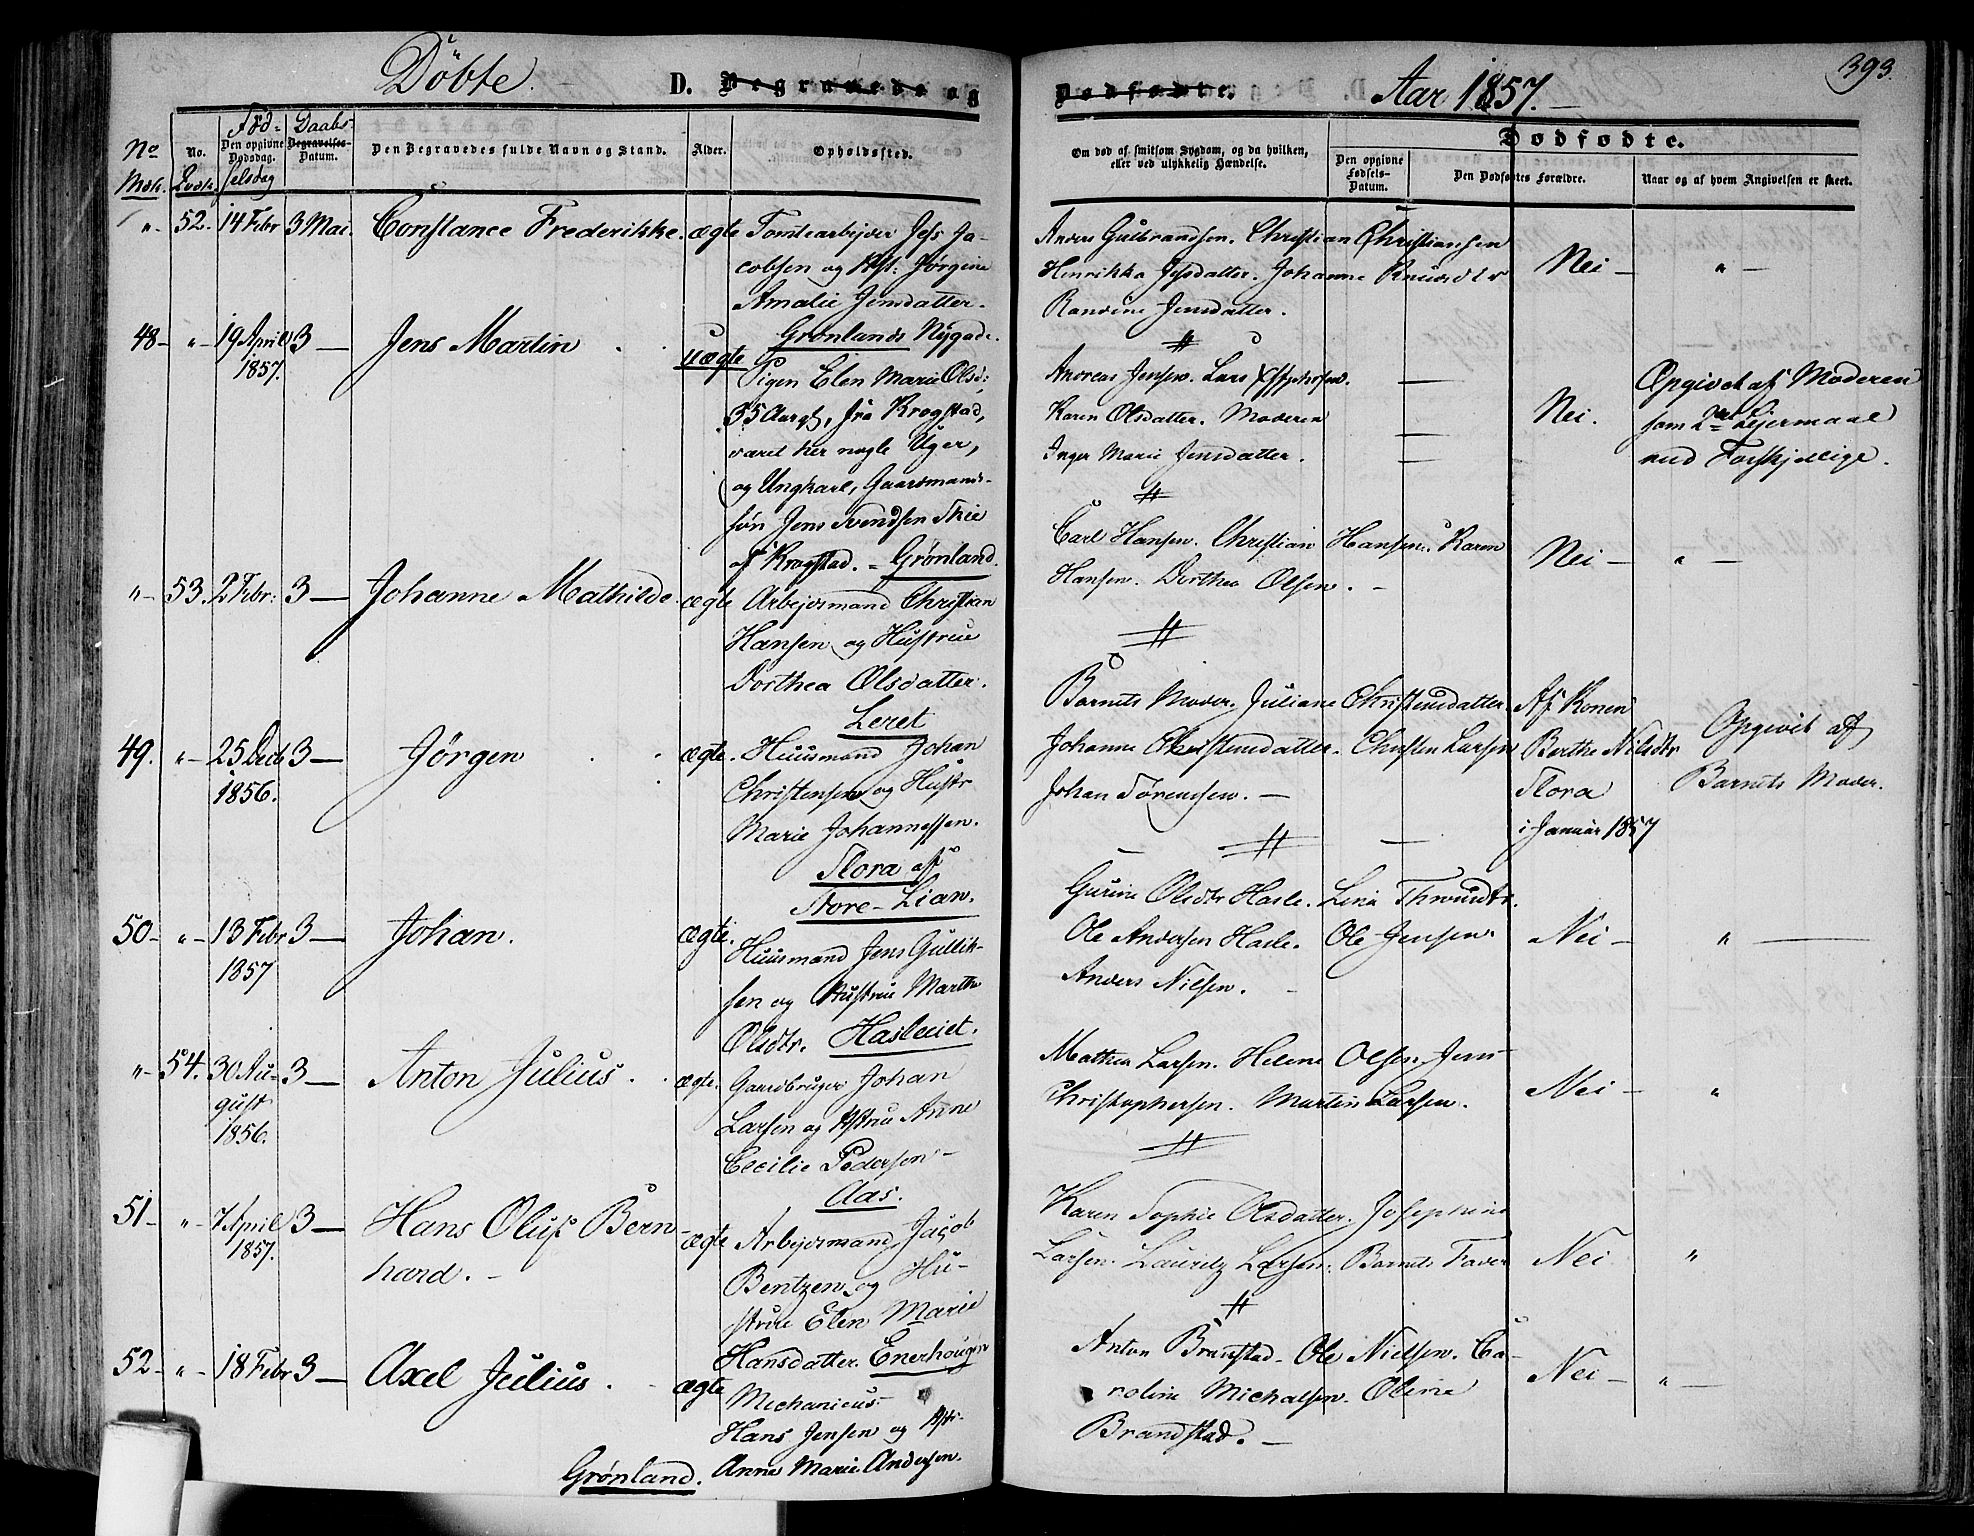 Döbte.
D. Begravede og
Dødfødte.
Aar 1857.
393.
No Mdk.
No. Qvdk.
Fød= Den opgivne Dødsdag. selsdag
Daabs- Begravelses-Datum.
Den Begravedes fulde Navn og Stand.
Alder.
Opholdssted.
Om død af smitsom Sygdom, og da hvilken,
eller ved ulykkelig Hændelse.
Dødfødte.
Den opgivne Fødsels-Datum.
Den Dødfødtes Forældre.
Naar og af hvem Angivelsen er skeet.
"- 52. 14 Febr 3 Mai. Constance Frederikke. ægte
Tomtearbeider Jess Ja-
cobsen og Hst: Jørgine
Amalie Jensdatter.
Grønlands Nygade.
Anders Gulbrandsen. Christian Christiansen
Henrikka Jesdatter. Johanne Knudsdtr
Randine Jensdatter.
Nei - " -
48- "- 19 April 1857. 3 - Jens Martin uægte
Pigen Elen Marie Olsd:
35 Aargl, fra Krogstad,
været her nogle Uger,
og Ungkarl, Gaardmands-
søn Jens Svendsen Skie
af Krogstad. - Grønland.
Andreas Jensen. Lars
Karen Olsdatter. Moderen
Inger Marie Jensdatter.
Nei.
Opgivet af Moderen
som 2det Leiermaal
med Forskjellige.
"- 53. 2 Febr: 3 - Johanne Mathilde. ægte
Arbeidsmand Christian
Hansen og Hustrue
Dorthea Olsdatter.
Leret
Carl Hansen. Christian Hansen. Karen
Hansen. Dorthea Olsen. -
Nei - " -
49. "- 25 Decb 1856. 3 - Jørgen ægte.
Huusmand Johan
Christensen og Hustr
Marie Johannessen.
Flora af
Store-Lian.
Barnets Moder. Juliane Christensdatter.
Johanne Christensdatter. Christen Larsen
Johan Sørensen. -
Af Konen
Berthe Nilsdtr
Flora
i Januar 1857
Opgivet af
Barnets Moder.
50- "- 13 Febr 1857 3 - Johan. ægte.
Huusmand Jens Gullik-
sen og Hustrue Marthe
Olsdtr. Hasleeiet.
Gurine Olsdtr Hasle. Lina
Ole Andersen Hasle. Ole Jensen
Anders Nilsen.
Nei - " -
"- 54. 30 Au-
gust
1856. 3 - Anton Julius. ægte.
Gaardbruger Johan
Larsen og Hstrue Anne
Cecilie Pedersen -
Aas.
Mathea Larsen. Helene Olsen. Jens
Christophersen. Martin Larsen.
Nei - "
51- "- 7 April 1857. 3 - Hans Oluf Bern-
hard. - ægte
Arbeidsmand Jacob
Bentzen og Hu-
strue Elen Marie
Hansdatter. Enerhaugen
Karen Sophie Olsdatter. Josephine
Larsen. Lauritz Larsen. Barnets Fader
Nei "
52- "- 18 Febr 3 - Axel Julius. ægte
Mechanicus
Hans Jensen og Hst:
Anne Marie Andersen.
Grønland.
Anton Brandstad. Ole Nielsen. Ca-
roline Michalsen. Oline
Brandstad. -
Nei - " -